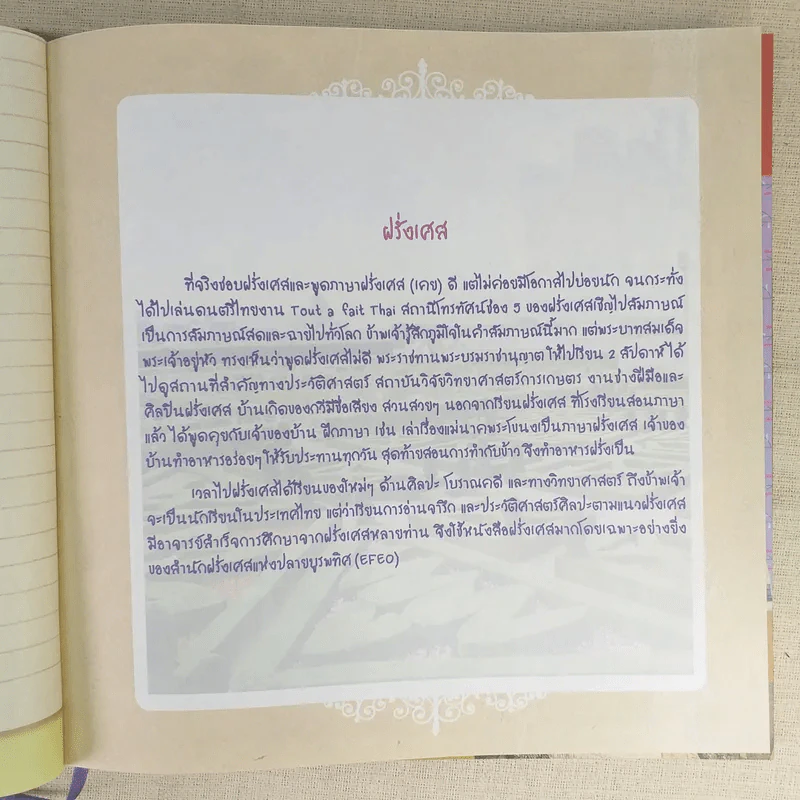 ฝรั่งเศส
ที่จริงชอบฝรั่งเศสและพูดภาษาฝรั่งเศส (เคย) ดี แต่ไม่ค่อยมีโอกาสไปบ่อยนัก จนกระทั่ง
ได้ไปเล่นดนตรีไทยงาน Tout a fait Thai สถานีโทรทัศน์ช่อง 5 ของฝรั่งเศสเชิญไปสัมภาษณ์
เป็นการสัมภาษณ์สดและฉายไปทั่วโลก ข้าพเจ้ารู้สึกภูมิใจในคำสัมภาษณ์นี้มาก แต่พระบาทสมเด็จ
พระเจ้าอยู่หัว ทรงเห็นว่าพูดฝรั่งเศสไม่ดี พระราชทานพระบรมราชานุญาต ให้ไปเรียน 2 สัปดาห์ ได้
ไปดูสถานที่สำคัญทางประวัติศาสตร์ สถาบันวิจัยวิทยาศาสตร์การเกษตร งานช่างฝีมือและ
ศิลปินฝรั่งเศส บ้านเกิดของกวีมีชื่อเสียง สวนสวยๆ นอกจากเรียนฝรั่งเศส ที่โรงเรียนสอนภาษา
แล้ว ได้พูดคุยกับเจ้าของบ้าน ฝึกภาษา เช่น เล่าเรื่องแม่นาคพระโขนงเป็นภาษาฝรั่งเศส เจ้าของ
บ้านทำอาหารอร่อยๆ ให้รับประทานทุกวัน สุดท้ายสอนการทำกับข้าว จึงทำอาหารฝรั่งเป็น
เวลาไปฝรั่งเศสได้เรียนของใหม่ๆ ด้านศิลปะ โบราณคดี และทางวิทยาศาสตร์ ถึงข้าพเจ้า
จะเป็นนักเรียนในประเทศไทย แต่ว่าเรียนการอ่านจารึก และประวัติศาสตร์ศิลปะตามแนวฝรั่งเศส
มีอาจารย์สำเร็จการศึกษาจากฝรั่งเศสหลายท่าน จึงใช้หนังสือฝรั่งเศสมากโดยเฉพาะอย่างยิ่ง
ของสำนักฝรั่งเศสแห่งปลายบูรพทิศ (EFEO)